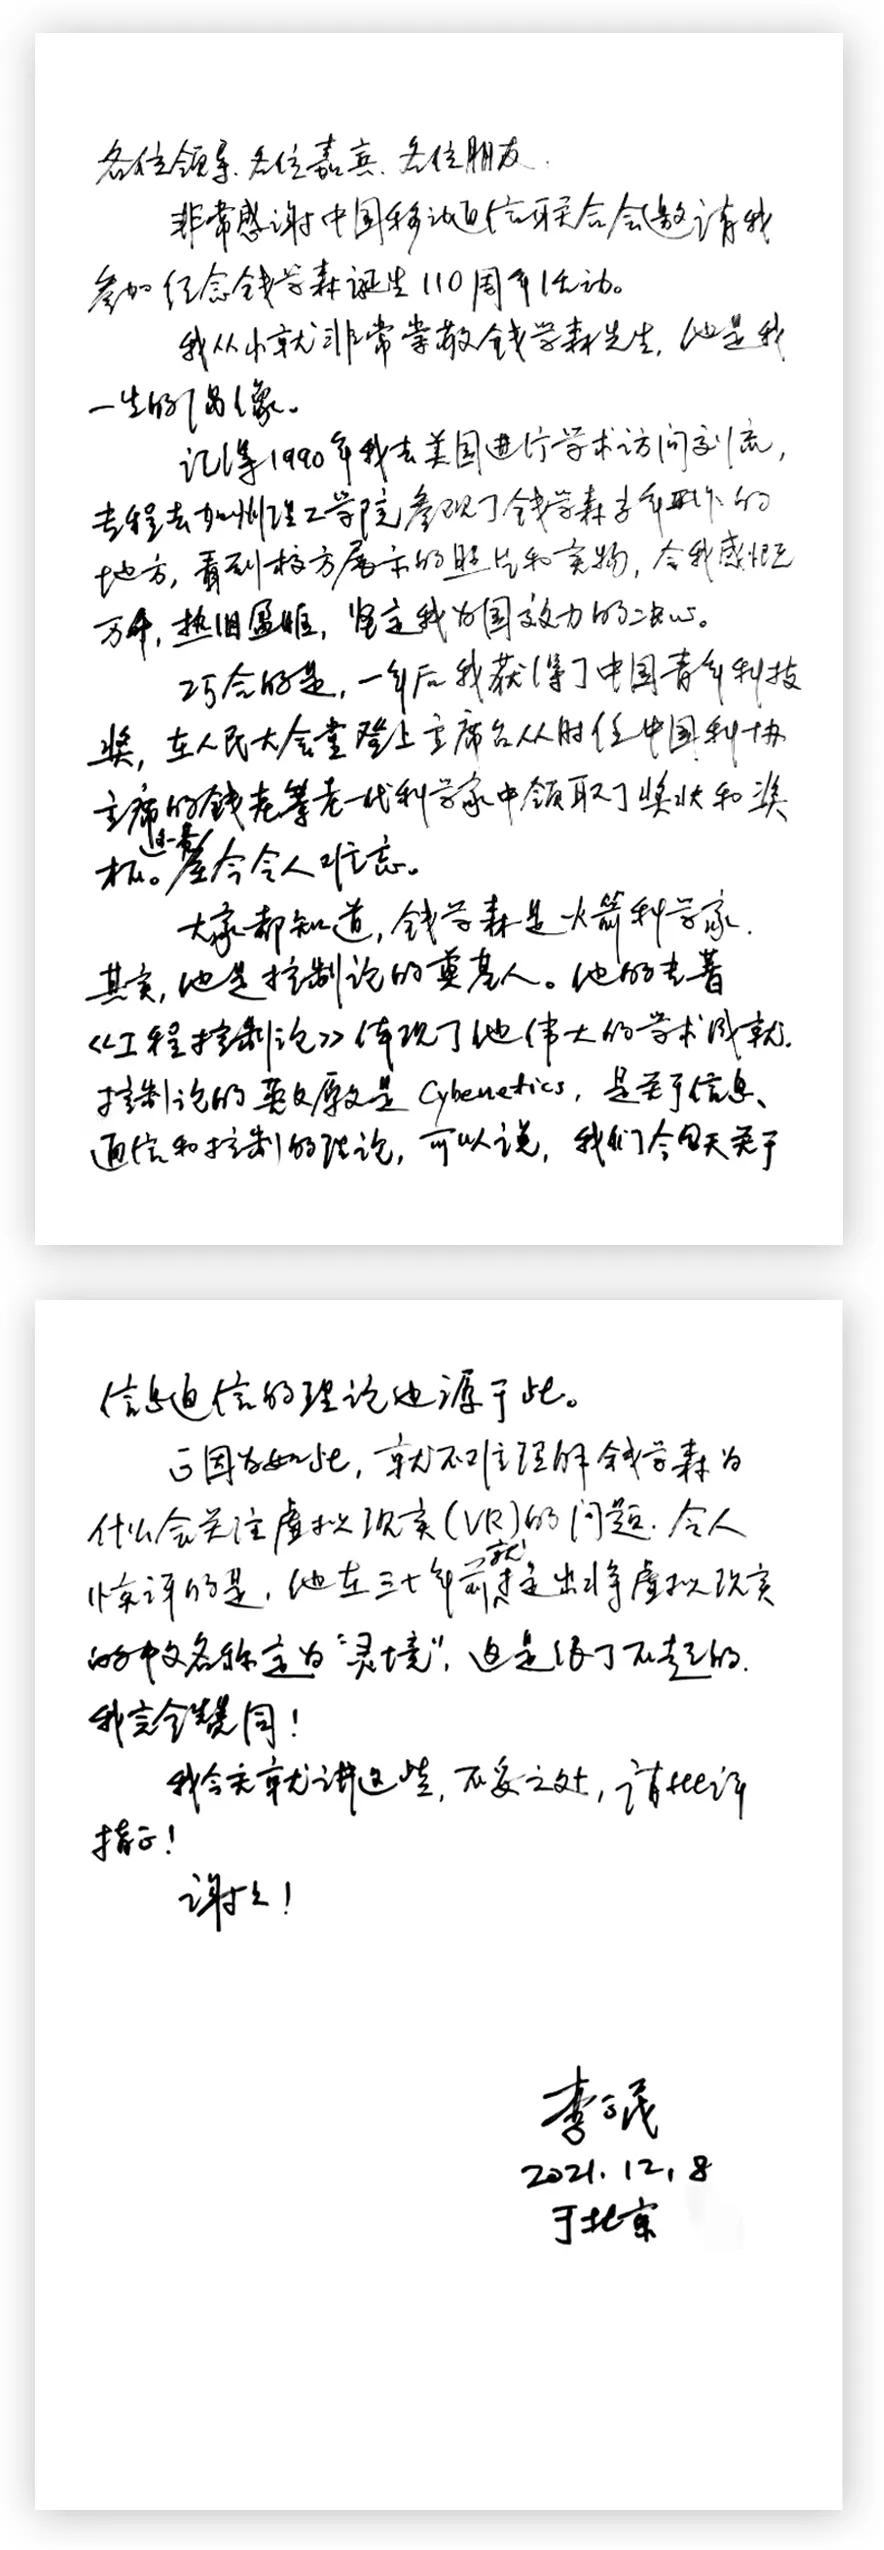 各位领导、各位嘉宾、各位朋友.
非常感谢中国移动通信联合会邀请我
参加纪念钱学森诞生110周年活动。
我从小就非常崇敬钱学森先生，他是我
一生的偶像。
记得1990年我去美国进行学术访问交流，
专程去加州理工学院参观了钱学森当年工作的
地方，看到校方展示的照片和实物，令我感慨
万千，热泪盈眶，坚定我为国效力的决心。
巧合的是，一年后我获得了中国青年科技
奖，在人民大会堂登上主席台从时任中国科协
主席的钱老等老一代科学家中领取了奖状和奖
杯。这一幕至今令人难忘。
大家都知道，钱学森是火箭科学家.
其实，他是控制论的奠基人。他的专著
《工程控制论》体现了他伟大的学术成就.
控制论的英文原文是Cybenetics，是关于信息、
通信和控制的理论，可以说，我们今天关于
信息通信的理论也源于此。
正因为如此，就不难理解钱学森为
什么会关注虚拟现实(VR)的问题.令人
惊讶的是，他在三十年前就提出将虚拟现实
的中文名称定为“灵境”，这是很了不起的.
我完全赞同！
我今天就讲这些，不妥之处，请批评
指正！
谢谢！
李正茂
2021.12.8
于北京